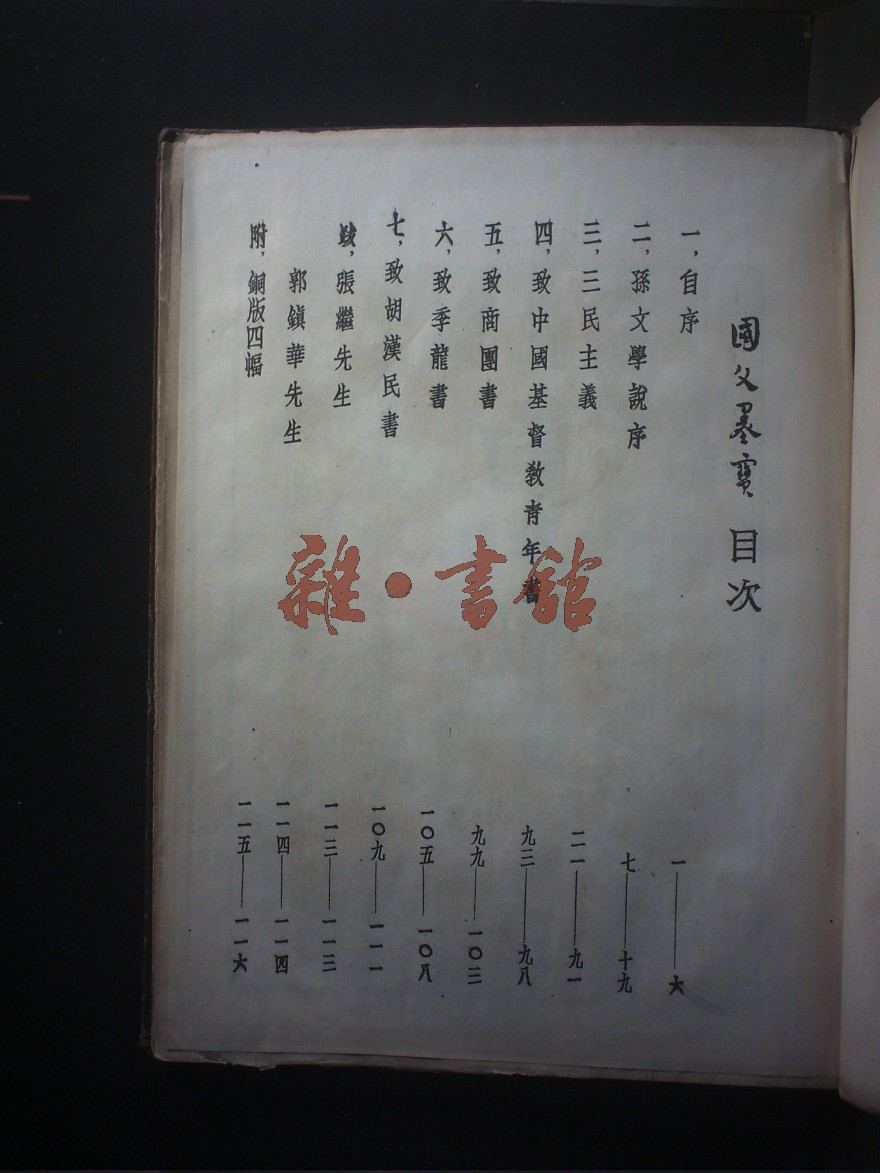 國父墨寶 目次
一，自序 一——六
二，孫文學說序 七——十九
三，三民主義 二一——九一
四，致中國基督教青年書 九三——九八
五，致商團書 九九——一〇三
六，致季龍書 一〇五——一〇八
七，致胡漢民書 一〇九——一一一
跋，張繼先生 一一三——一一三
郭鎮華先生 一一四——一一四
附，銅版四幅 一一五——一一六
雜·書館